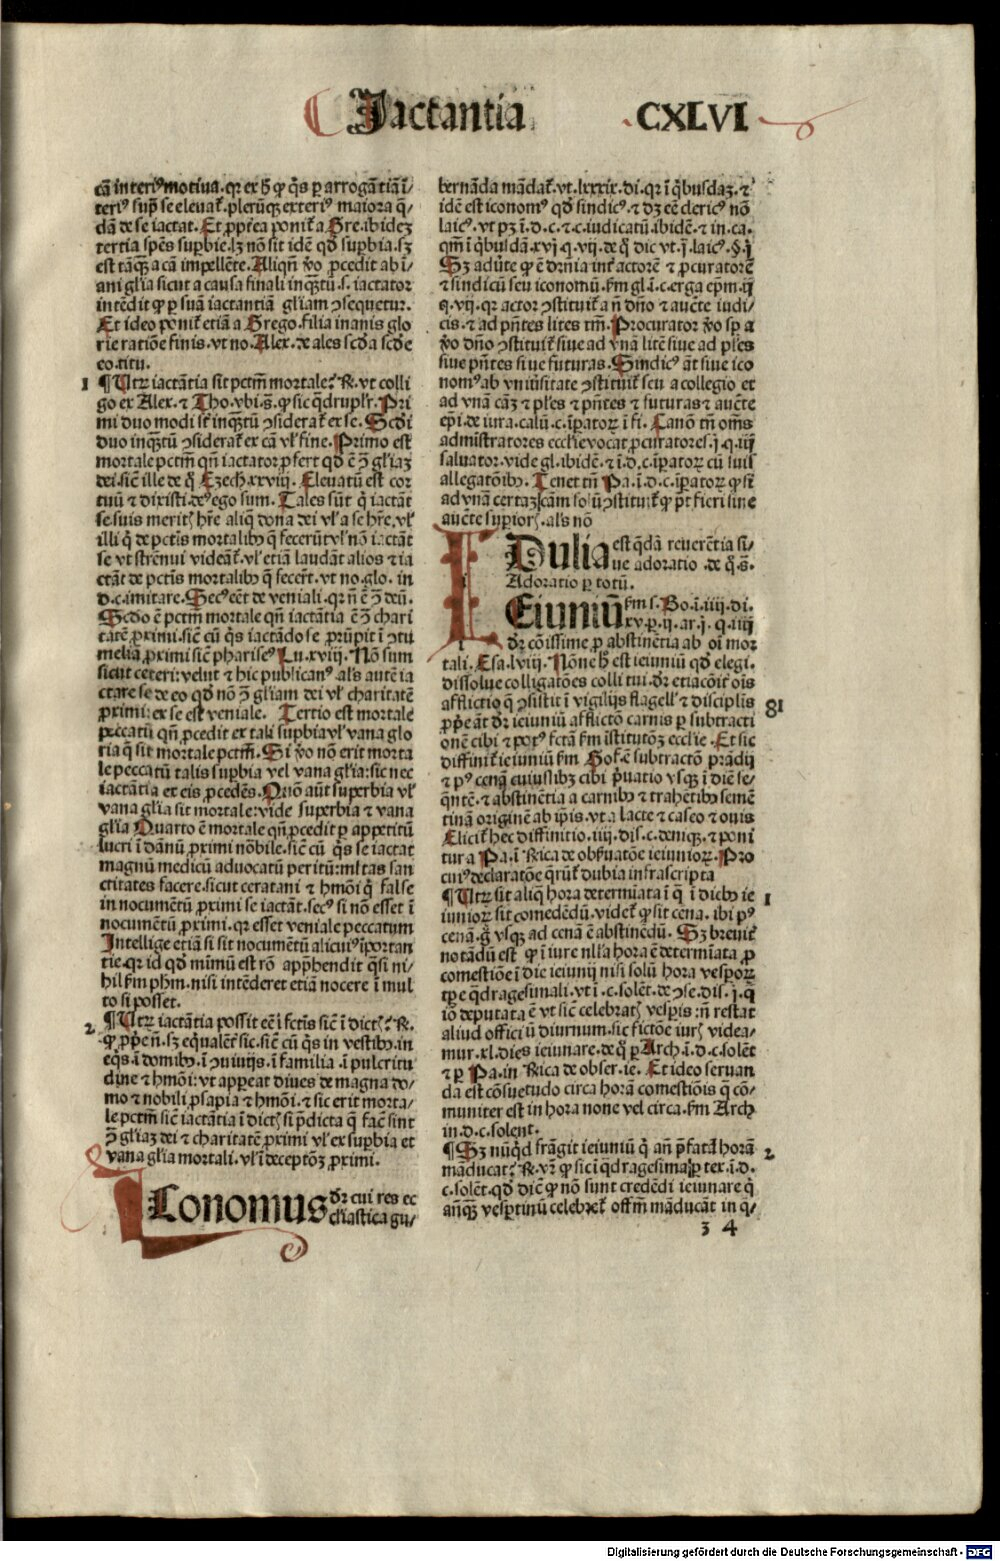 Jactantia
CXLVI
cā interiꝰ motiua. qꝛ ex h̄ ꝙ q̇s ꝑ arrogātiā ī-
teriꝰ sup̄ se eleuat̄. pleruꝫ exteriꝰ maiora q̄-
dā de se iactat. Et ꝓpt̄ea ponit̄ a Gre. ibideꝫ
tertia sp̄es suꝑbie. lꝫ nō sit idē qd̄ suꝑbia. sꝫ
est tāqꝫ a cā impellēte. Aliqn̄ v̄o ꝓcedit ab ī-
ani gl̄ia sicut a causa finali inqꝫtū .s. iactator
intēdit ꝙ ꝑ suā iactantiā gl̄iam ꝯsequetur.
Et ideo ponit̄ etiā a Grego. filia inanis glo
rie ratiōe finis. vt no. Alex. de ales scd̄a scd̄e
eo. titu.
1
¶ Utꝝ iactātia sit pctm̄ mortale? R̄. vt colli
go ex Alex. ⁊ Tho. vbi .s. ꝙ sic qd̄rupl̄r. Pri
mi duo modi st̄ inqꝫtū ꝯsiderat̄ ex se. Scd̄i
duo inqꝫtū ꝯsiderat̄ ex cā vl̓ fine. Primo est
mortale pctm̄ qn̄ iactator ꝓfert qd̄ ē ꝯ̄ gl̄iaꝫ
dei. sic̄ ille de q̄ Ezech. xxviij. Eleuatū est cor
tuū ⁊ dixisti. deꝰ ego sum. Tales sūt q̇ iactāt
se suis meritꝭ hr̄e aliq̄ dona dei vl̓ a se hr̄e. vl̓
illi q̇ de pctīs mortalibꝰ q̄ fecerūt vl̓ nō iactāt
se vt strēnui videāt̄. vl̓ etiā laudāt alios ⁊ ia
ctāt de pctīs mortalibꝰ q̄ fecer̄t. vt no. glo. in
d. c. imitare. Secꝰ eēt de veniali. qꝛ n̄ ē ꝯ̄ deū.
Scd̄o ē pctm̄ mortale qn̄ iactātia ē ꝯ̄ chari
tatē ꝓximi. sic̄ cū q̇s iactādo se ꝓrūpit ī ꝯtu
meliā ꝓximi sic̄ phariseꝰ Lu. xviij. Nō sum
sicut ceteri: velut ⁊ hic publicanꝰ als̄ autē ia
ctare se de eo qd̄ nō ꝯ̄ gl̄iam dei vl̓ charitatē
ꝓximi: ex se est veniale. Tertio est mortale
peccatū qn̄ ꝓcedit ex tali suꝑbia vl̓ vana glo
ria q̄ sit mortale pctm̄. Si v̄o nō erit morta
le peccatū talis suꝑbia vel vana gl̄ia: sic nec
iactātia et eis ꝓcedēs. Qn̄o aūt suꝑbia vl̓
vana gl̄ia sit mortale: vide suꝑbia ⁊ vana
gl̄ia Quarto ē mortale qn̄ ꝓcedit ꝑ appetitū
lucri ī dānū ꝓximi nōbile. sic̄ cū q̇s se iactat
magnū medicū aduocatū peritū: ml̄tas san
ctitates facere. sicut ceratani ⁊ hmōi q̇ false
in nocumētū ꝓximi se iactāt. secꝰ si nō esset ī
nocumētū ꝓximi. qꝛ esset veniale peccatum
Intellige etiā si sit nocumētū alicuiꝰ īportan
tie. qꝛ id qd̄ mīmū est rō app̄hendit q̄si ni-
hil ẜm phm̄. nisi intēderet etiā nocere ī mul
to si posset.
2
¶ Utꝝ iactātia possit eē ī fctīs sic̄ ī dictꝭ? R̄.
ꝙ ꝓp̄e n̄. sꝫ equalēt̄ sic. sic̄ cū q̇s in vestibꝰ. in
eq̇s. ī domibꝰ. ī ꝯuiuijs. ī familia. ī pulcritu
dine ⁊ hmōi: vt appeat diues de magna do-
mo ⁊ nobili ꝓsapia ⁊ hmōi. ⁊ sic erit morta-
le pctm̄ sic̄ iactātia ī dictꝭ si p̄dicta q̄ fac̄ sint
ꝯ̄ gl̄iaꝫ dei ⁊ charitatē ꝓximi vl̓ ex suꝑbia et
vana gl̄ia mortali. vl̓ ī deceptōꝫ ꝓximi.
Iconomus dr̄ cui res ec
cl̄iastica gu-
bernāda mādat̄. vt. lxxxix. di. qꝛ ī q̇busdaꝫ. ⁊
idē est iconomꝰ qd̄ sindicꝰ. ⁊ dꝫ eē clericꝰ nō
laicꝰ. vt pꝫ ī. d. c. ⁊ c. iudicatū. ibidē. ⁊ in. ca.
qm̄ ī q̇busdā. xvj. q. vij. de q̄ dic vt. j. laicꝰ. §. j
Sꝫ aduīte ꝙ ē dr̄nia int̄ actorē ⁊ ꝓcuratorē
⁊ sindicū seu iconomū. ẜm gl. ī. c. erga ep̄m. ij
q. vij. qꝛ actor ꝯstituit̄ a n̄ dn̄o ⁊ aucte iudi-
cis. ⁊ ad pn̄tes lites tm̄. Procurator v̄o sꝑ a
v̄o dn̄o ꝯstituit̄ siue ad vnā litē siue ad pl̄es
siue pn̄tes siue futuras. Sindicꝰ āt siue ico
nomꝰ ab vniūsitate ꝯstituit̄ seu a collegio et
ad vnā cāꝫ ⁊ pl̄es ⁊ pn̄tes ⁊ futuras ⁊ aucte
ep̄i. de iura. calū. c. īꝑatoꝝ ī fi. Canō tm̄ om̄s
admīstratores eccl̄ie vocat ꝓcuratores. j. q. iij
saluator. vide gl. ibidē. ⁊ ī. d. c. īꝑatoꝝ cū suis
allegatōibꝰ. Tenet tn̄ Pa. ī. d. c. īꝑatoꝝ ꝙ sī
ad vnā certaꝫ cām solū ꝯstituit̄ ꝙ pōt fieri sine
aucte suꝑiorꝭ. als̄ nō
IDulia est q̄dā reuerētia si-
ue adoratio. de q̄ .s.
Adoratio ꝑ totū.
IEiuniū ẜm s. Bo. ī. iiij. di.
xv. ꝑ. ij. ar. j. q. iiij
dr̄ cōissime ꝓ abstinētia ab oī mor
tali. Esa. lviij. Nōne h̄ est ieiuniū qd̄ elegi.
dissolue colligatōes colli tui. dr̄ etiā cōit̄ oīs
afflictio q̄ ꝯsistit ī vigilijs flagell̓ ⁊ disciplīs
ꝓp̄e āt dr̄ ieiuniū afflictō carnis ꝑ subtracti
onē cibi ⁊ potꝰ fctā ẜm īstitutōꝫ eccl̄ie. Et sic
diffinit̄ ieiuniū ẜm Gof. ē subtractō prādij
⁊ pꝰ cenā cuiuslibꝫ cibi p̄uatio vsqꝫ ī diē se-
q̄ntē. ⁊ abstinētia a carnibꝰ ⁊ trahētibꝰ semē
tinā originē ab ip̄is. vt a lacte ⁊ caseo ⁊ ouis
Elicit̄ hec diffinitio. iiij. dis. c. deniqꝫ. ⁊ poni
tur a Pa. ī Rica de obẜuatōe ieiunioꝝ. Pro
cuiꝰ declaratōe q̄rūt̄ dubia infrascripta
1
¶ Utꝝ sit aliq̄ hora determīata ī q̄ ī diebꝰ ie
iunioꝝ sit comedēdū. videt̄ ꝙ sit cena. ibi pꝰ
cenā. g̊ vsqꝫ ad cenā ē abstinēdū. Sꝫ breuit̄
notādū est ꝙ ī iure nll̄a hora ē determīata ꝓ
comestiōe ī die ieiunij nisi solū hora vesperoꝝ
tꝑe q̄dragesimali. vt ī. c. solēt. de ꝯse. dis. j. q̄
iō deputata ē vt sic̄ celebratꝭ vesꝑis: n̄ restat
aliud officiū diurnum. sic fictōe iurꝭ videa-
mur. xl. dies ieiunare. de q̄ ꝑ Arch. ī. d. c. solēt
⁊ ꝑ Pa. in Rica de obser. ie. Et ideo seruan
da est cōsuetudo circa horā comestiōis q̄ cō-
muniter est in hora none vel circa. ẜm Arch
in. d. c. solent.
2
¶ Sꝫ nūqd̄ frāgit ieiuniū q̇ an̄ p̄fatā horā
māducat? R̄. vr̄ ꝙ sic ī qdragesima ꝑ tex. ī. d.
c. solēt. qd̄ dic̄ ꝙ nō sunt credēdi ieiunare q̇
an̄qꝫ vespertinū celebret̄ offm̄ māducāt in q-
3 4
81
Digitalisierung gefördert durch die Deutsche Forschungsgemeinschaft - DFG